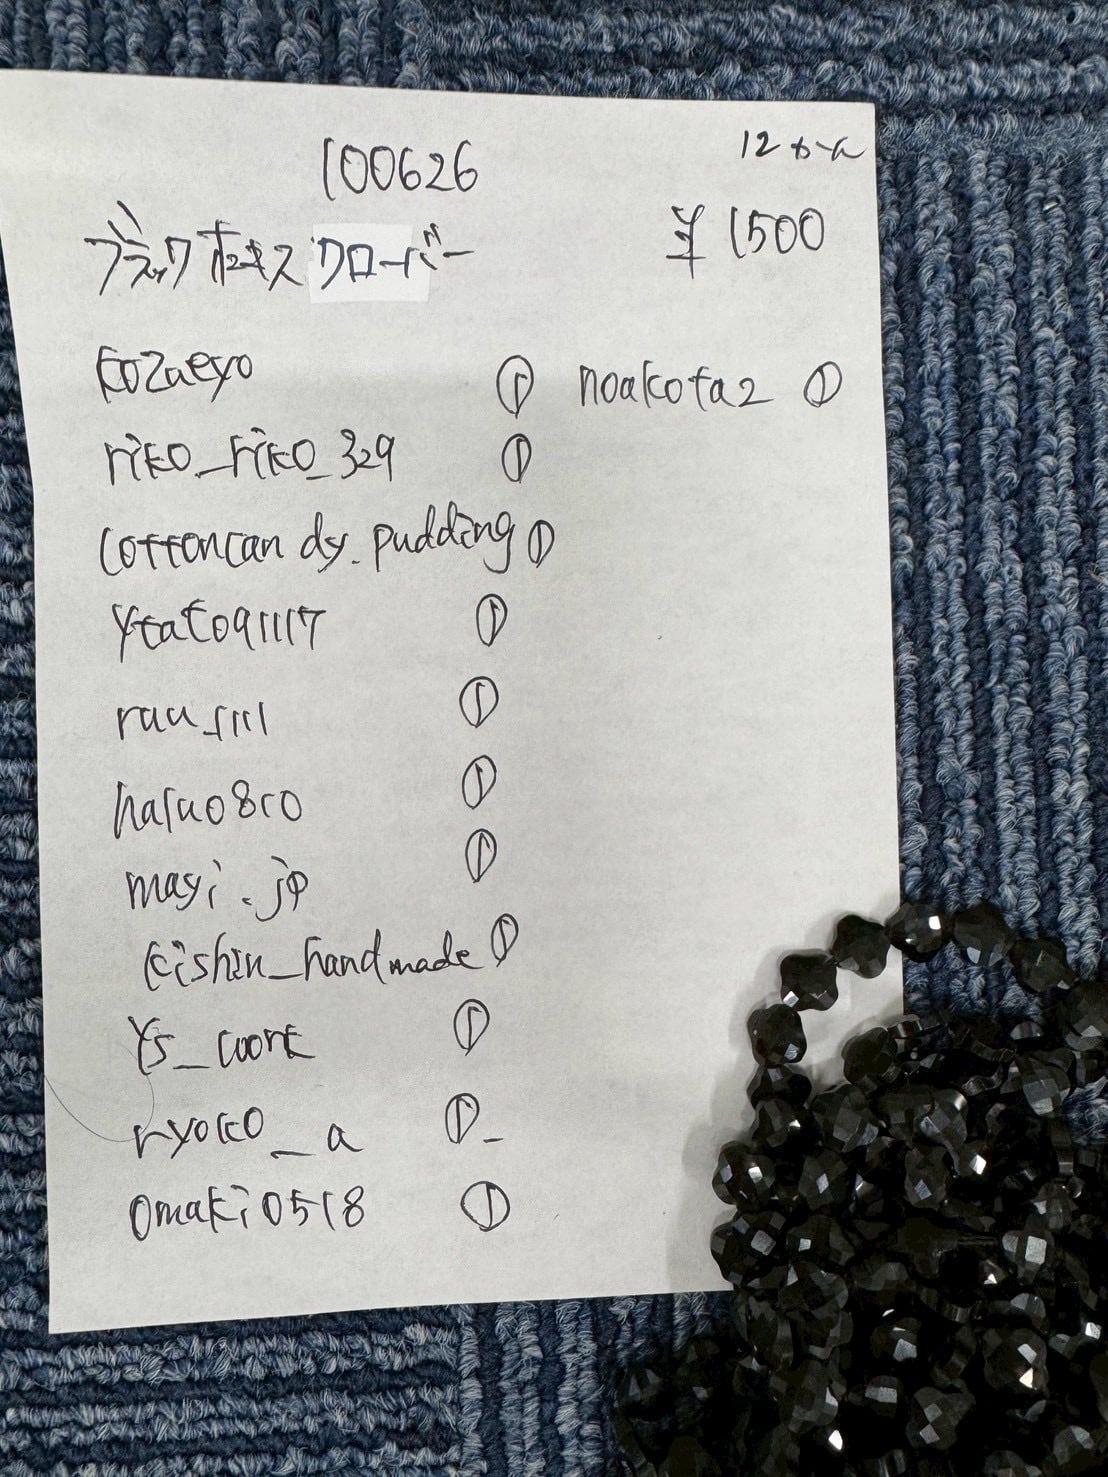 100626
12かん
ブラックオニキスクローバー
¥1500
kozaeyo ①
noakota2 ①
riko_riko_329 ①
cottoncandy.pudding ①
ytato91117 ①
ruu_1111 ①
haruo8ro ①
mayi.jp ①
kishin_handmade ①
ys_coort ①
ryoko__a ①
omaki0518 ①